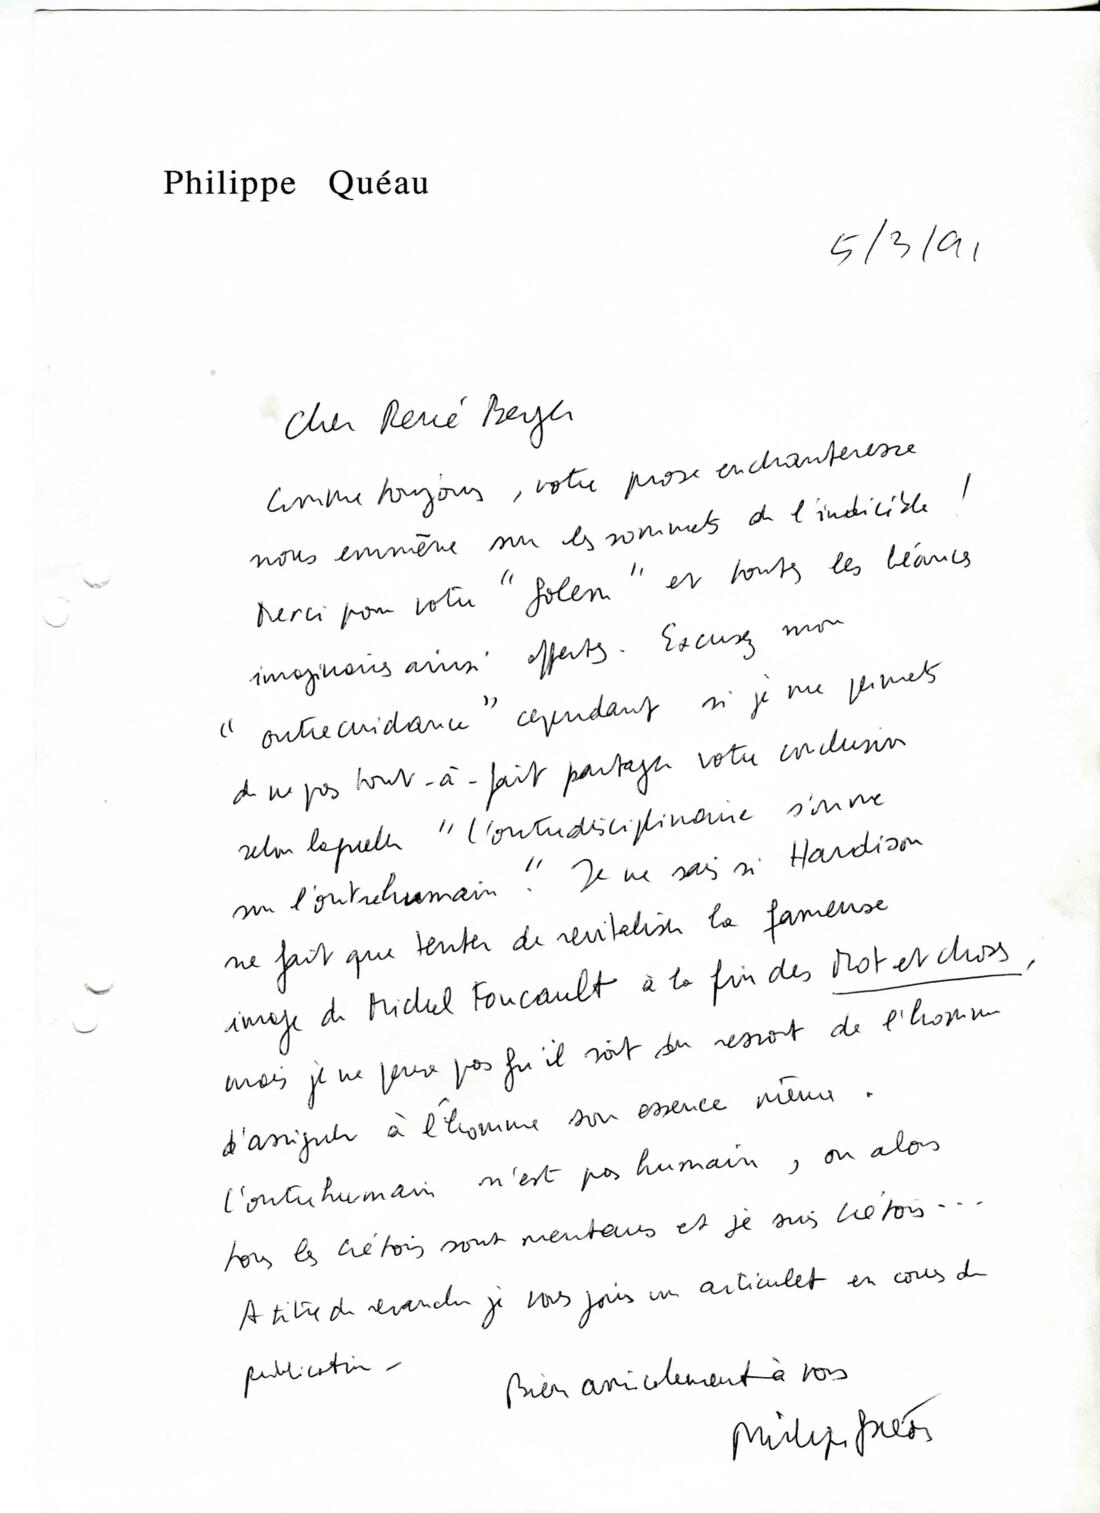 Philippe Quéau
5/3/91
Cher René Berger
Comme toujours, votre prose enchanteresse
nous emmène sur les sommets de l'indicible !
Merci pour votre "Golem" et toutes les béances
imaginaires ainsi offertes. Excusez mon
"outrecuidance" cependant si je me permets
de ne pas tout-à-fait partager votre conclusion
selon laquelle "l'outredisciplinaire s'ouvre
sur l'outrehumain". Je ne sais si Hardison
ne fait que tenter de revitaliser la fameuse
image de Michel Foucault à la fin des Mot et choses,
mais je ne pense pas qu'il soit du ressort de l'homme
d'assigner à l'homme son essence même.
L'outrehumain n'est pas humain, ou alors
tous les crétois sont menteurs et je suis crétois...
A titre de revanche je vous joins un articulet en cours de
publication -
Bien amicalement à vous
Philippe Quéau